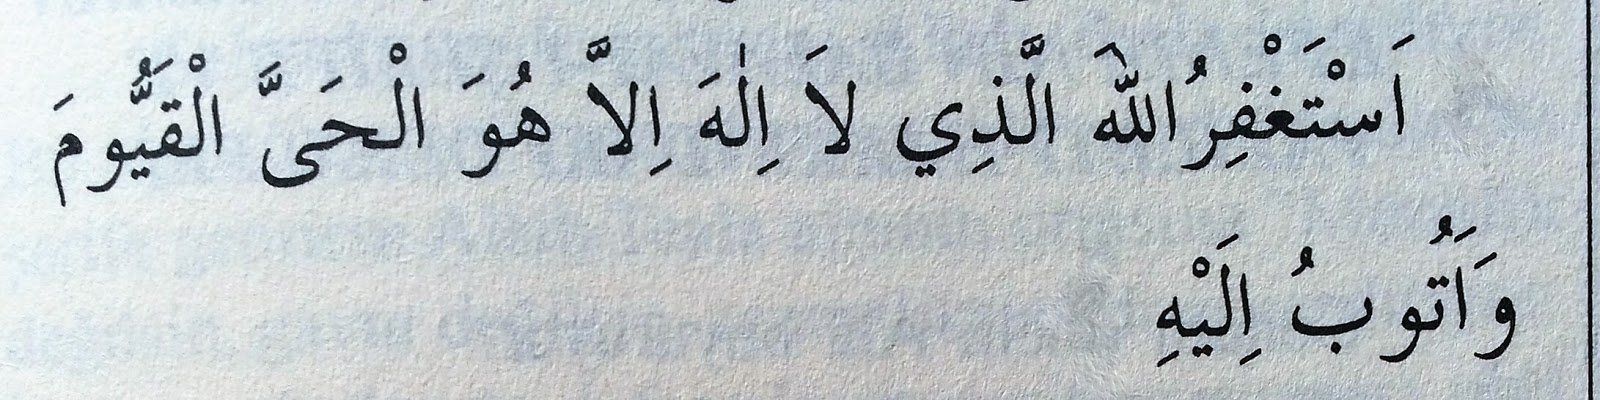 اَسْتَغْفِرُ اللّٰهَ الَّذِي لاَ اِلٰهَ اِلاَّ هُوَ الْحَىَّ الْقَيُّومَ
وَاَتُوبُ اِلَيْهِ